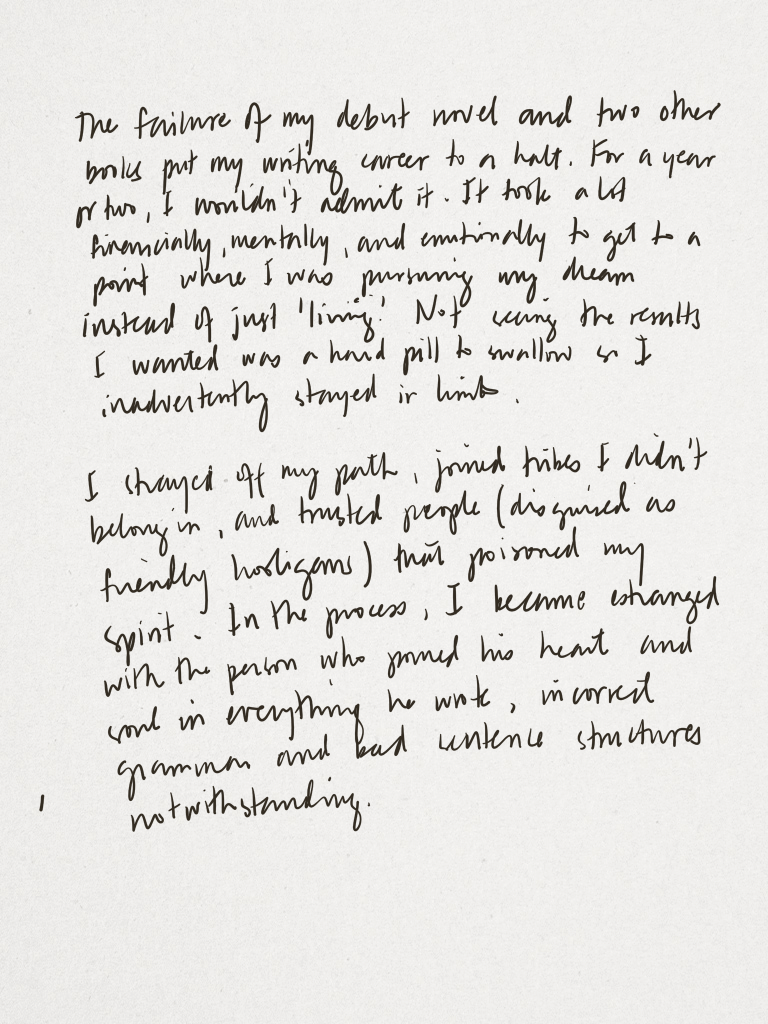 The failure of my debut novel and two other
books put my writing career to a halt. For a year
or two, I wouldn't admit it. It took a lot
financially, mentally, and emotionally to get to a
point where I was pursuing my dream
instead of just 'living'. Not seeing the results
I wanted was a hard pill to swallow so I
inadvertently stayed in limbo.
I strayed off my path, joined tribes I didn't
belong in, and trusted people (disguised as
friendly hooligans) that poisoned my
spirit. In the process, I became estranged
with the person who poured his heart and
soul in everything he wrote, incorrect
grammar and bad sentence structures
notwithstanding.